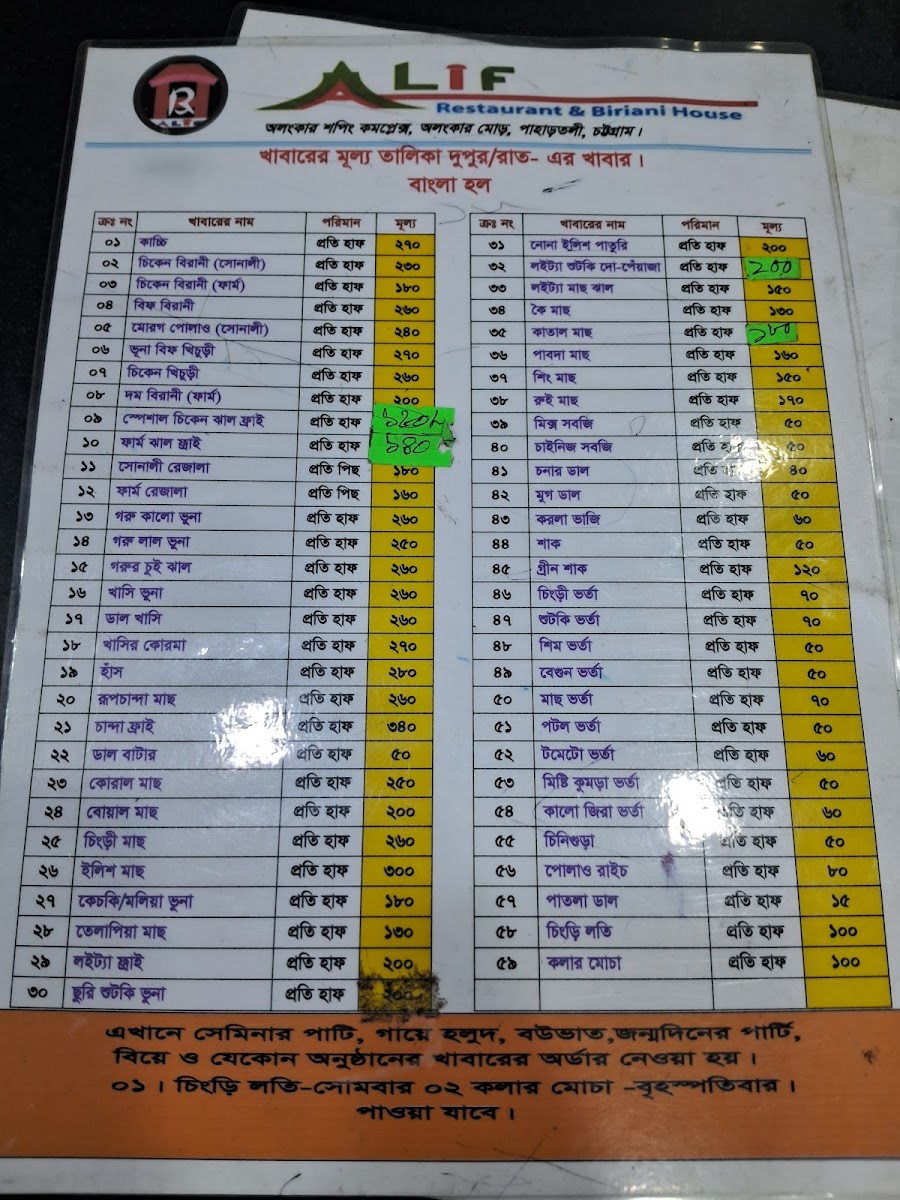 ALIF
ALIF
Restaurant & Biriani House
অলংকার শপিং কমপ্লেক্স, অলংকার মোড়, পাহাড়তলী, চট্টগ্রাম।
খাবারের মূল্য তালিকা দুপুর/রাত- এর খাবার।
বাংলা হল
ক্রঃ নং খাবারের নাম পরিমান মূল্য
০১ কাচ্চি প্রতি হাফ ২৭০
০২ চিকেন বিরানী (সোনালী) প্রতি হাফ ২৩০
০৩ চিকেন বিরানী (ফার্ম) প্রতি হাফ ১৮০
০৪ বিফ বিরানী প্রতি হাফ ২৬০
০৫ মোরগ পোলাও (সোনালী) প্রতি হাফ ২৪০
০৬ ভূনা বিফ খিচুড়ী প্রতি হাফ ২৭০
০৭ চিকেন খিচুড়ী প্রতি হাফ ২৬০
০৮ দম বিরানী (ফার্ম) প্রতি হাফ ২০০
০৯ স্পেশাল চিকেন ঝাল ফ্রাই প্রতি হাফ
১০ ফার্ম ঝাল ফ্রাই প্রতি হাফ
১১ সোনালী রেজালা প্রতি পিছ ১৮০
১২ ফার্ম রেজালা প্রতি পিছ ১৬০
১৩ গরু কালো ভূনা প্রতি হাফ ২৬০
১৪ গরু লাল ভূনা প্রতি হাফ ২৫০
১৫ গরুর চুই ঝাল প্রতি হাফ ২৬০
১৬ খাসি ভূনা প্রতি হাফ ২৬০
১৭ ডাল খাসি প্রতি হাফ ২৬০
১৮ খাসির কোরমা প্রতি হাফ ২৭০
১৯ হাঁস প্রতি হাফ ২৮০
২০ রূপচান্দা মাছ প্রতি হাফ ২৬০
২১ চান্দা ফ্রাই প্রতি হাফ ৩৪০
২২ ডাল বাটার প্রতি হাফ ৫০
২৩ কোরাল মাছ প্রতি হাফ ২৫০
২৪ বোয়াল মাছ প্রতি হাফ ২০০
২৫ চিংড়ী মাছ প্রতি হাফ ২৬০
২৬ ইলিশ মাছ প্রতি হাফ ৩০০
২৭ কেচকি/মলিয়া ভূনা প্রতি হাফ ১৮০
২৮ তেলাপিয়া মাছ প্রতি হাফ ১৩০
২৯ লইট্যা ফ্রাই প্রতি হাফ ২০০
৩০ ছুরি শুটকি ভূনা প্রতি হাফ ২০০
ক্রঃ নং খাবারের নাম পরিমান মূল্য
৩১ নোনা ইলিশ পাতুরি প্রতি হাফ ২০০
৩২ লইট্যা শুটকি দো-পেঁয়াজা প্রতি হাফ 200
৩৩ লইট্যা মাছ ঝাল প্রতি হাফ ১৫০
৩৪ কৈ মাছ প্রতি হাফ ১৩০
৩৫ কাতাল মাছ প্রতি হাফ
৩৬ পাবদা মাছ প্রতি হাফ ১৬০
৩৭ শিং মাছ প্রতি হাফ ১৫০
৩৮ রুই মাছ প্রতি হাফ ১৭০
৩৯ মিক্স সবজি প্রতি হাফ ৫০
৪০ চাইনিজ সবজি প্রতি হাফ ৫০
৪১ চনার ডাল প্রতি হাফ ৪০
৪২ মুগ ডাল প্রতি হাফ ৫০
৪৩ করলা ভাজি প্রতি হাফ ৬০
৪৪ শাক প্রতি হাফ ৫০
৪৫ গ্রীন শাক প্রতি হাফ ১২০
৪৬ চিংড়ী ভর্তা প্রতি হাফ ৭০
৪৭ শুটকি ভর্তা প্রতি হাফ ৭০
৪৮ শিম ভর্তা প্রতি হাফ ৫০
৪৯ বেগুন ভর্তা প্রতি হাফ ৫০
৫০ মাছ ভর্তা প্রতি হাফ ৭০
৫১ পটল ভর্তা প্রতি হাফ ৫০
৫২ টমেটো ভর্তা প্রতি হাফ ৬০
৫৩ মিষ্টি কুমড়া ভর্তা প্রতি হাফ ৫০
৫৪ কালো জিরা ভর্তা প্রতি হাফ ৬০
৫৫ চিনিগুড়া প্রতি হাফ ৫০
৫৬ পোলাও রাইচ প্রতি হাফ ৮০
৫৭ পাতলা ডাল প্রতি হাফ ১৫
৫৮ চিংড়ি লতি প্রতি হাফ ১০০
৫৯ কলার মোচা প্রতি হাফ ১০০
এখানে সেমিনার পার্টি, গায়ে হলুদ, বউভাত,জন্মদিনের পার্টি,
বিয়ে ও যেকোন অনুষ্ঠানের খাবারের অর্ডার নেওয়া হয়।
০১। চিংড়ি লতি-সোমবার ০২ কলার মোচা -বৃহস্পতিবার।
পাওয়া যাবে।